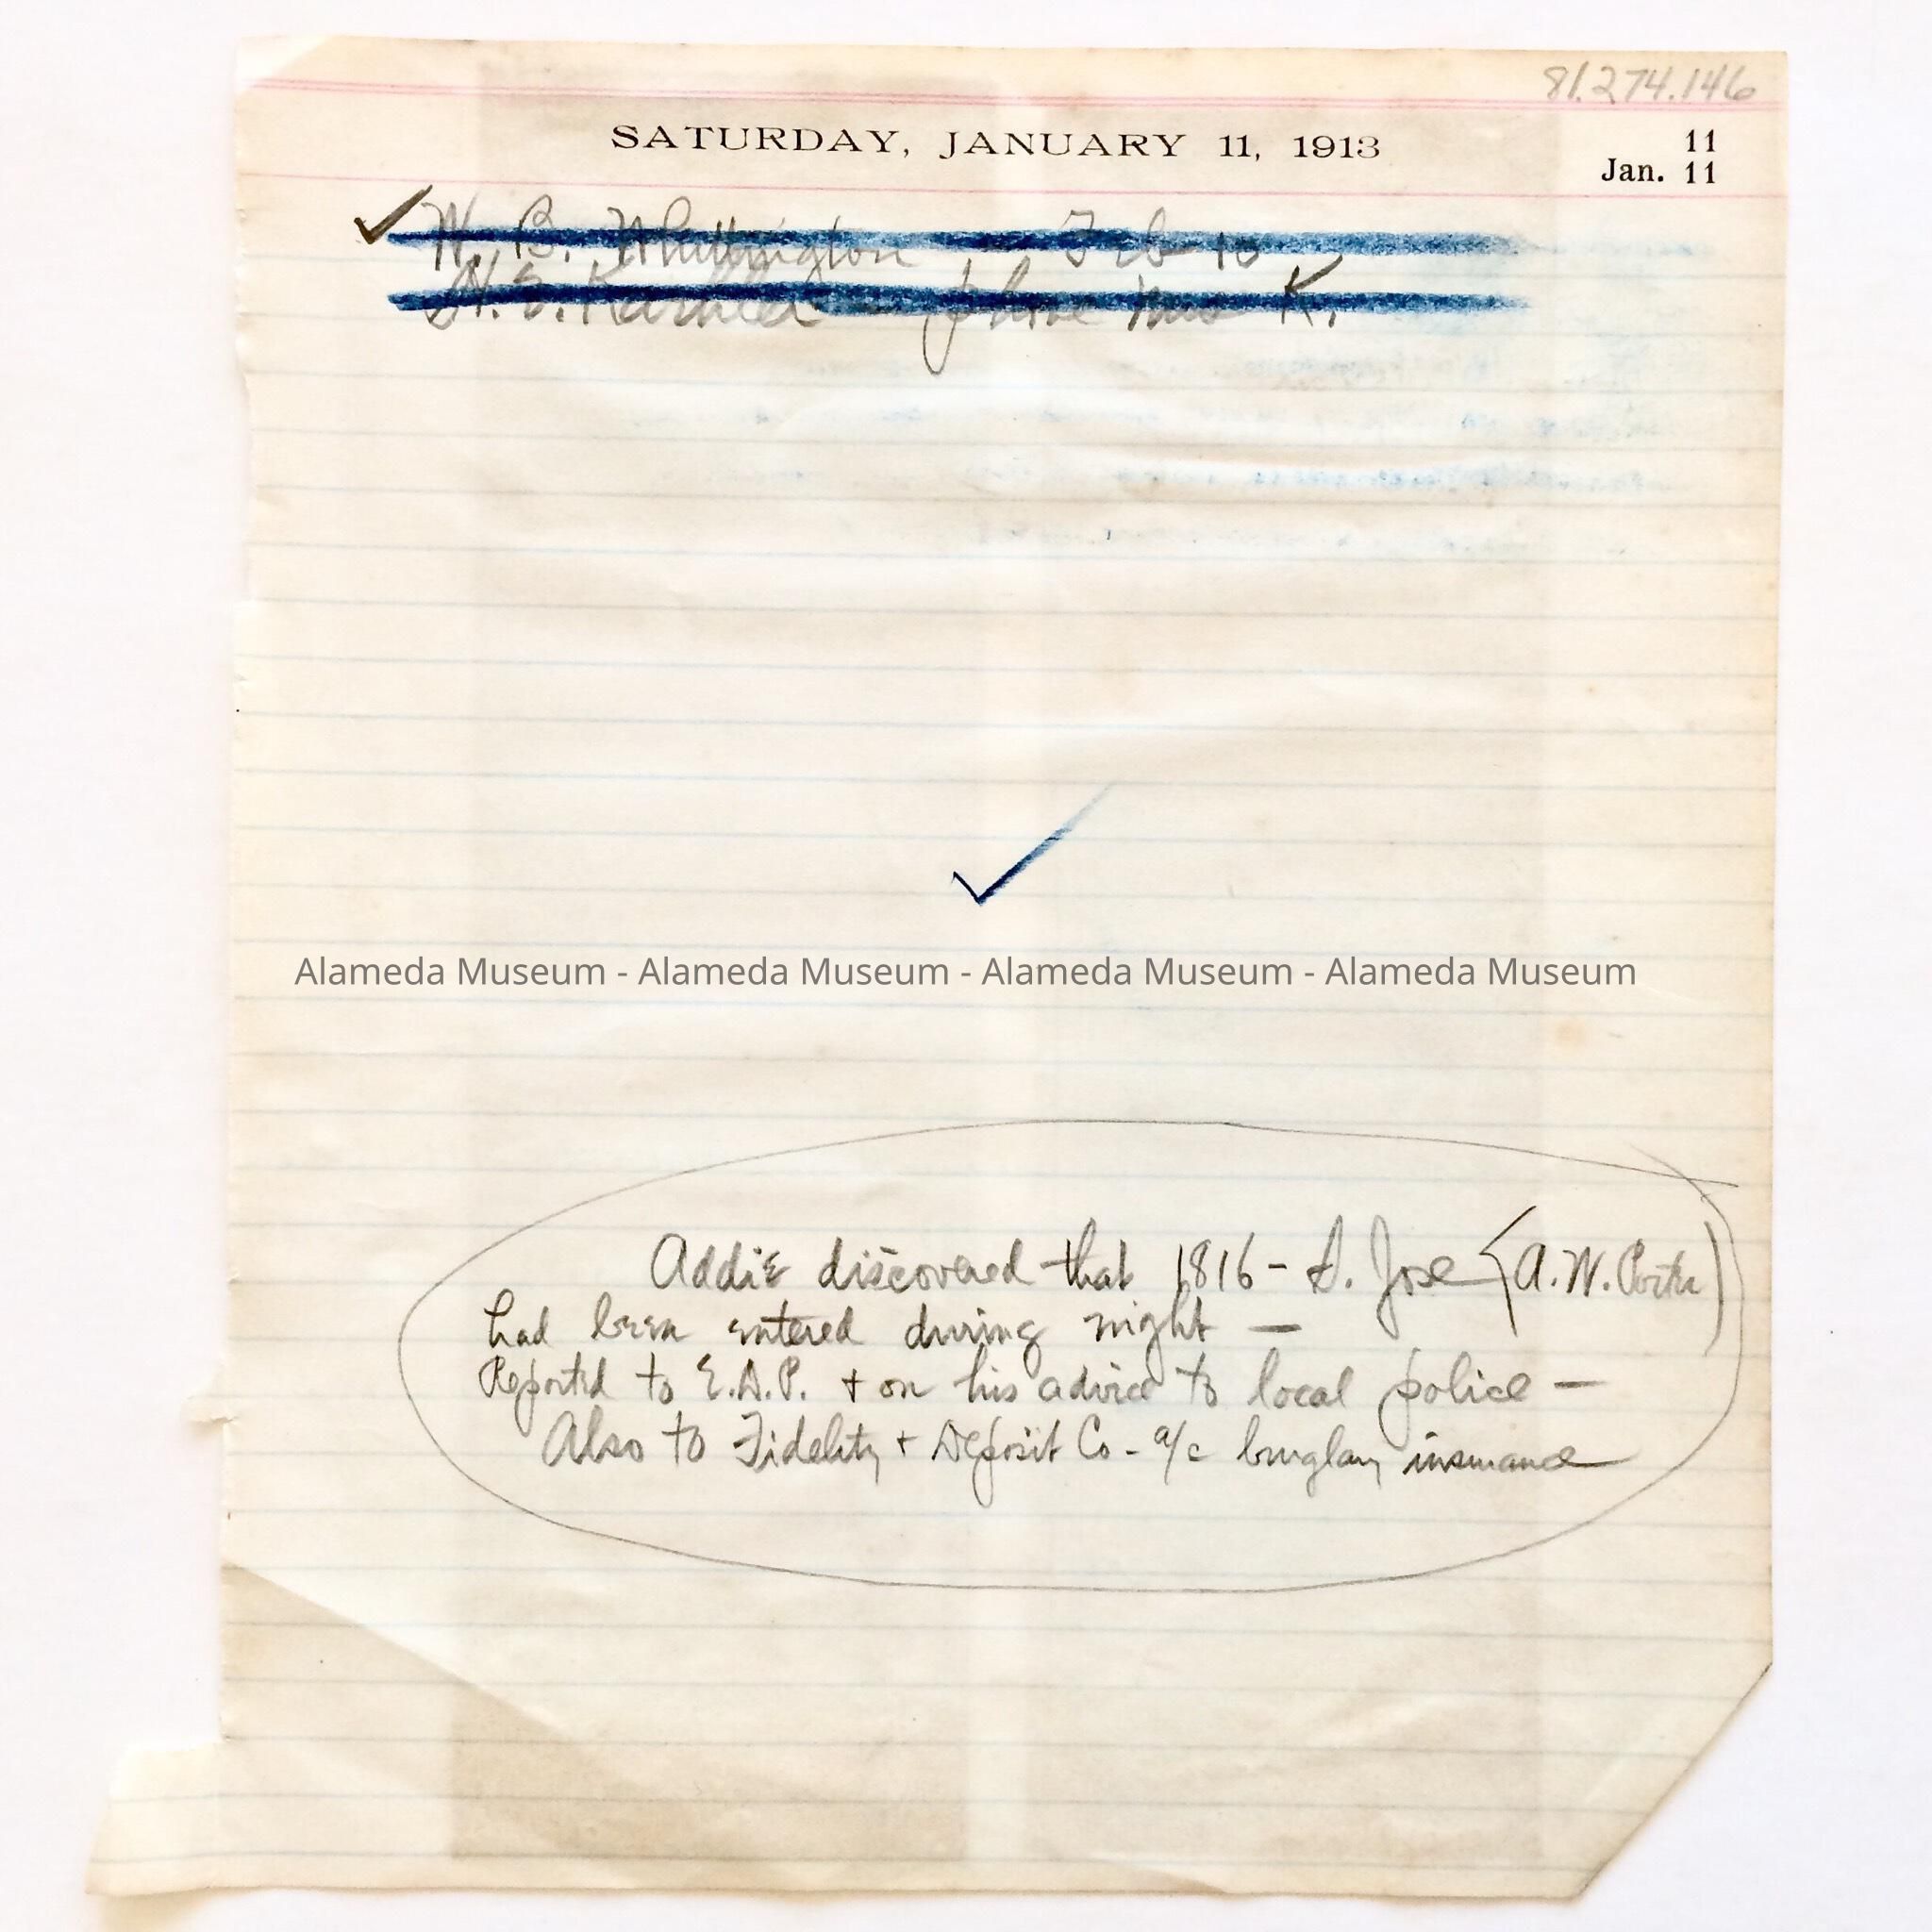 81.274.146
SATURDAY, JANUARY 11, 1913
11
Jan. 11
W. B. Whittington Feb 10
phone Mrs K.
Alameda Museum - Alameda Museum - Alameda Museum - Alameda Museum
Addie discovered that 1816 - S. Jose (A. W. Porter)
had been entered during night —
Reported to E.A.P. + on his advice to local police —
Also to Fidelity + Deposit Co - a/c burglary insurance